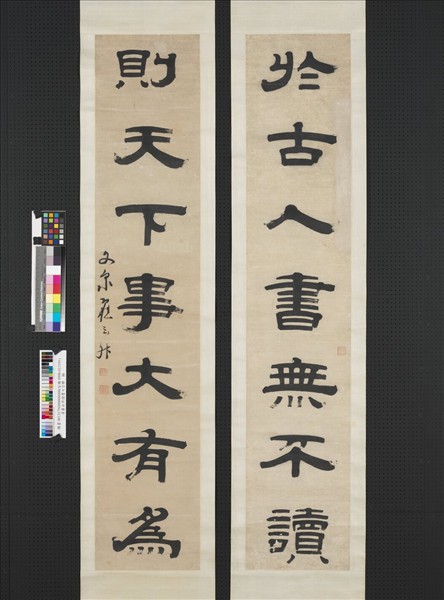 於古人書無不讀
則天下事大有為